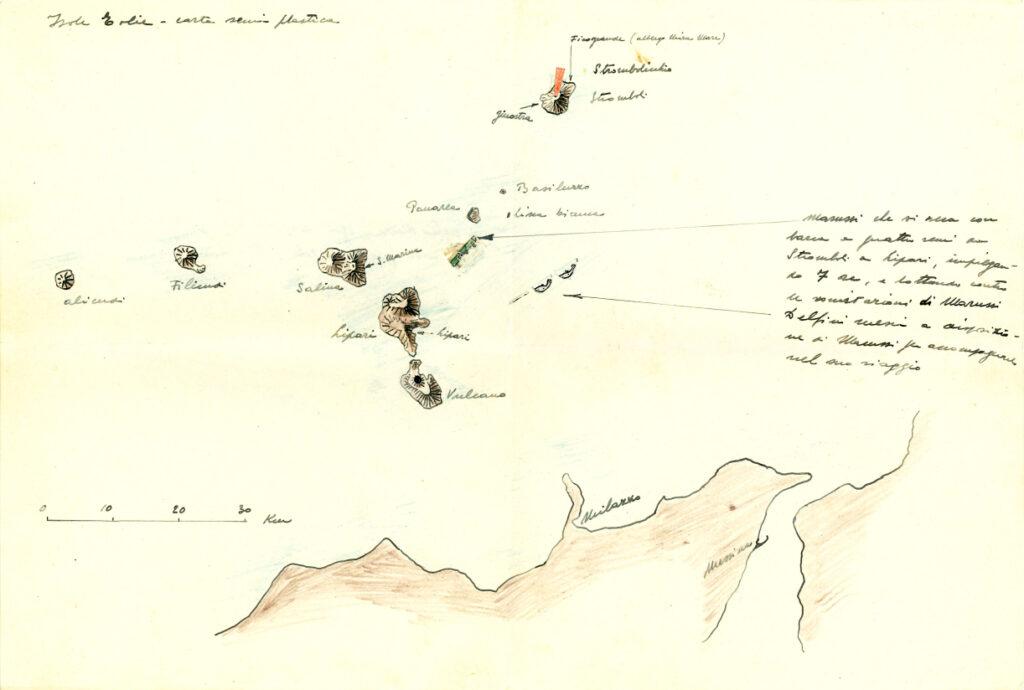 Isole Eolie - carta semi plastica
Ficogrande (albergo Miramare)
Strombolicchio
Stromboli
Ginostra
Basiluzzo
Panarea
Lisca bianca
S. Marina
Salina
Filicudi
alicudi
Lipari
Lipari
Vulcano
Marussi che si reca con
barca a quattro remi da
Stromboli a Lipari, impiegan-
do 7 ore, e lottando contro
le
di Marussi
Delfini messi a disposizio-
ne di Marussi per accompagnarlo
nel suo viaggio
0 10 20 30 Km
Milazzo
Messina